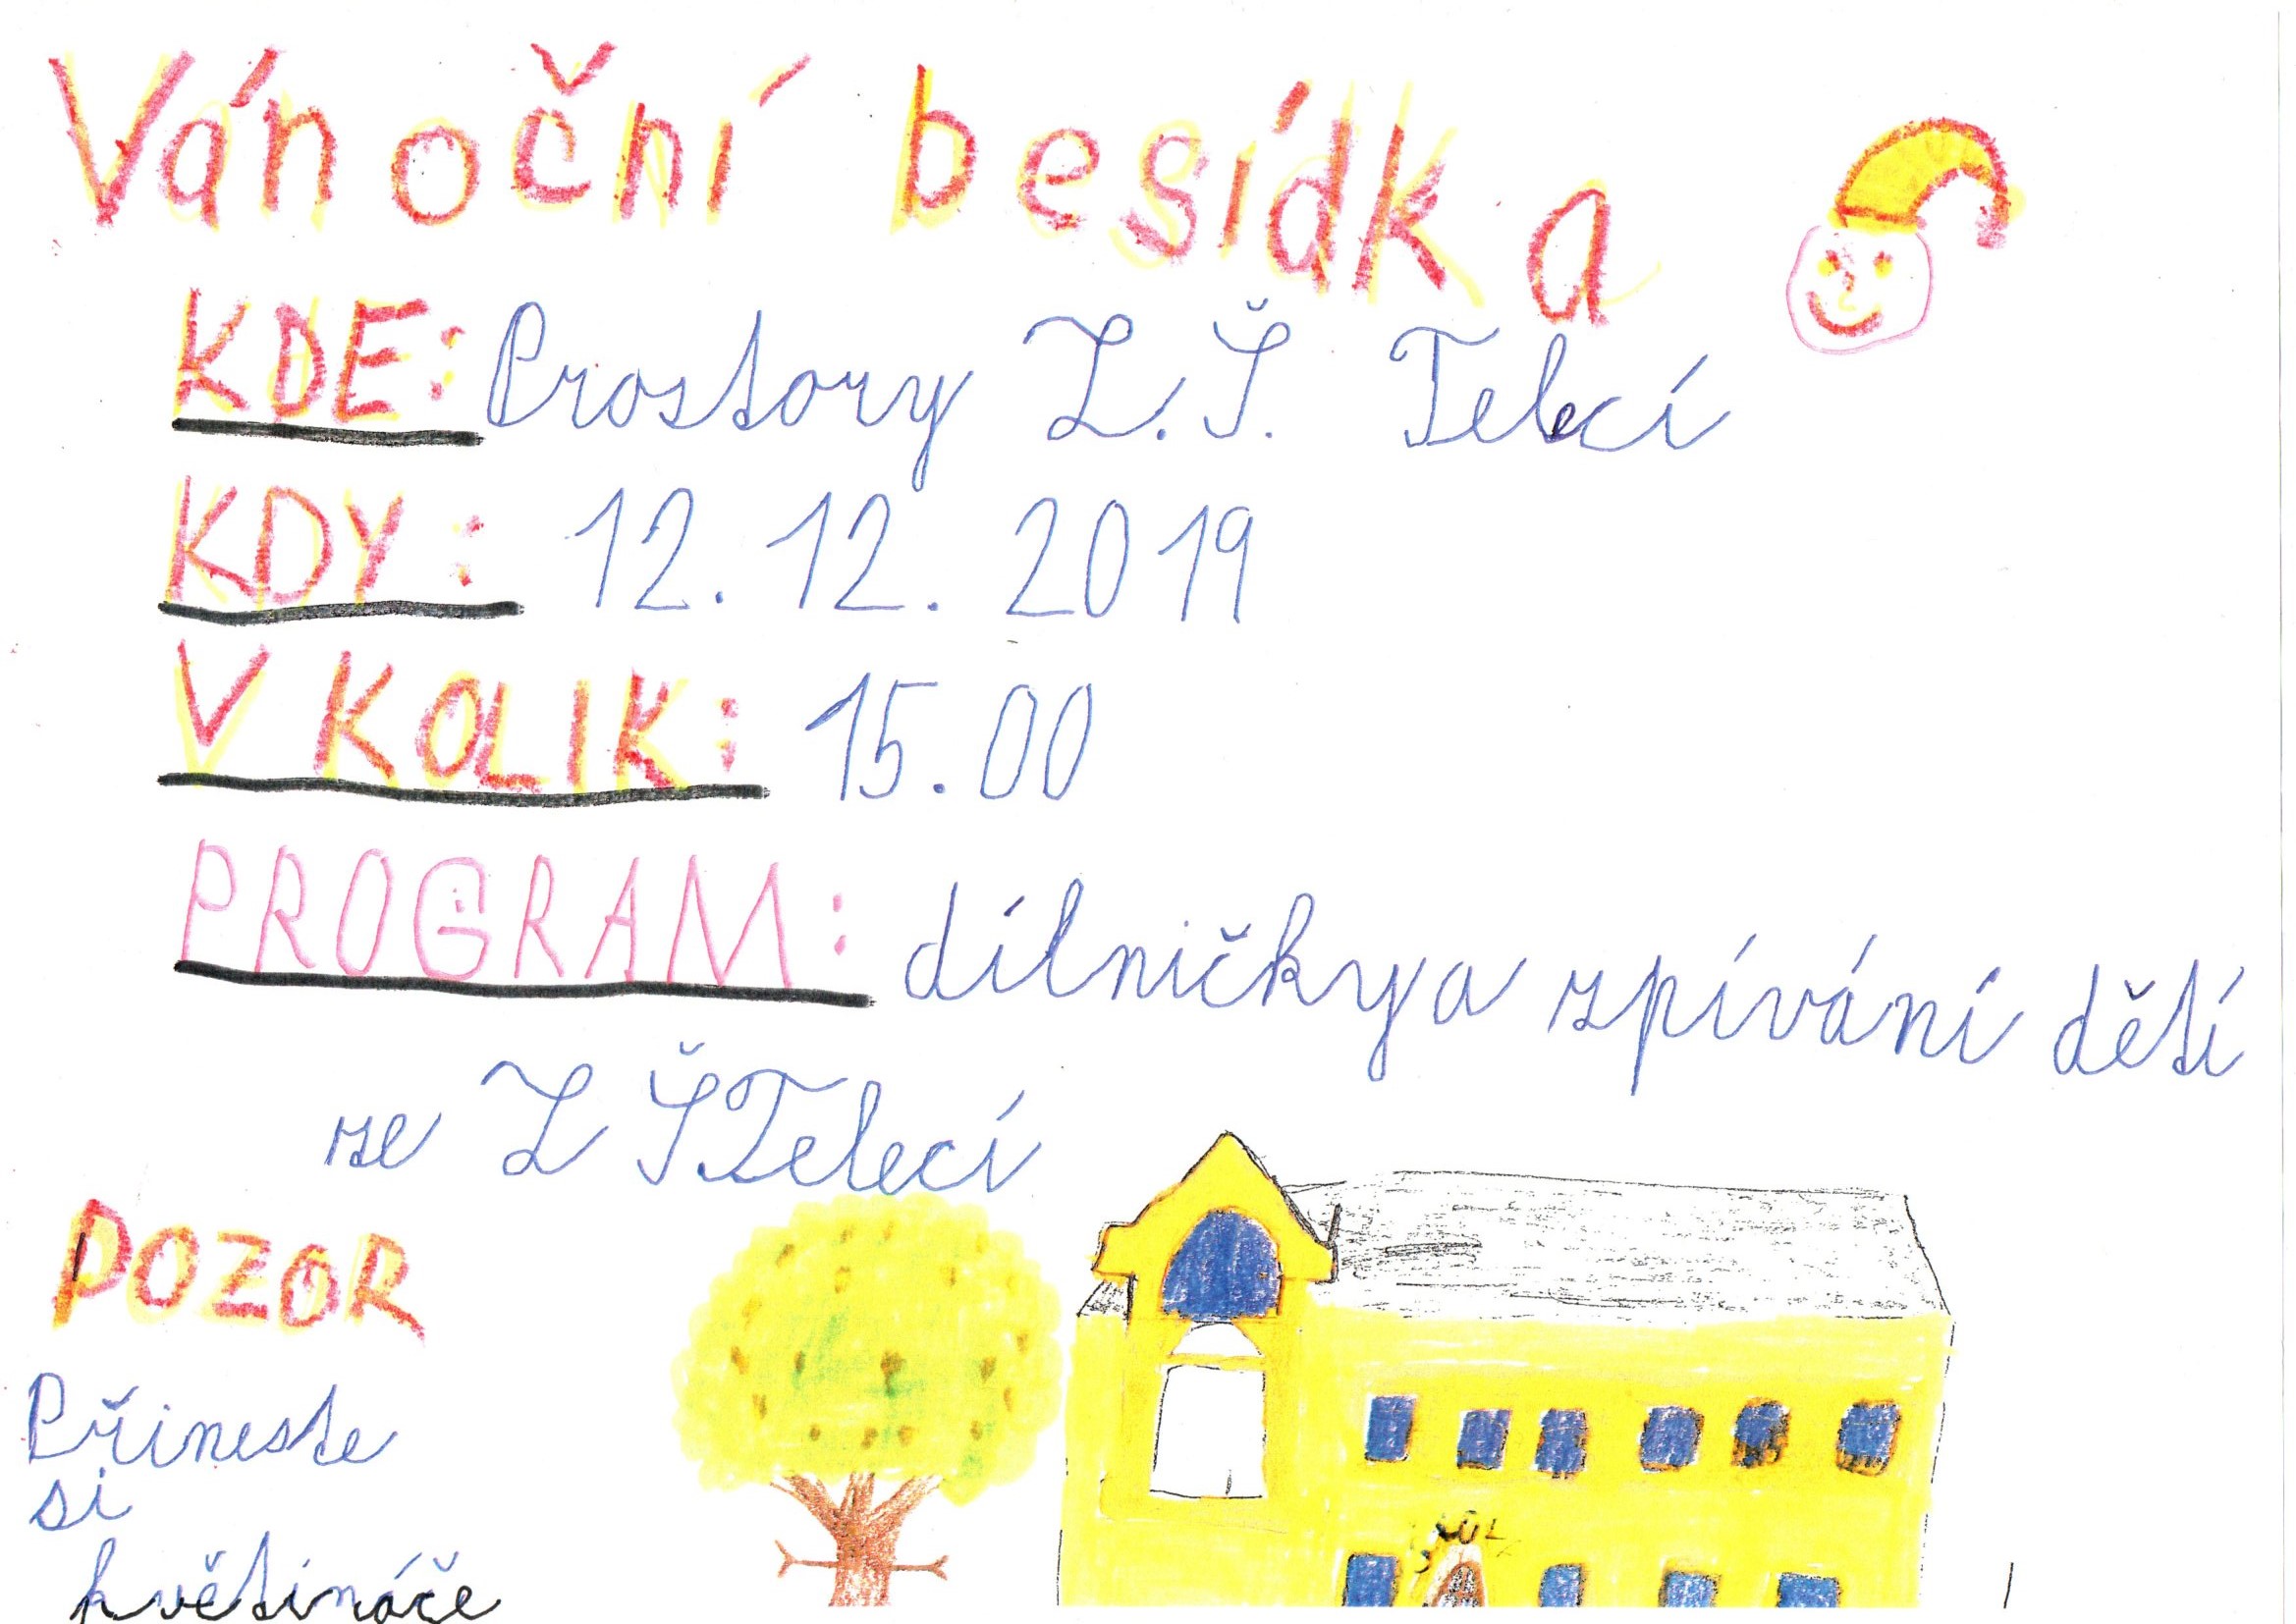 Vánoční besídka
KDE: Prostory Z.Š. Telecí
KDY: 12.12.2019
V KOLIK: 15.00
PROGRAM: dílničky a zpívání dětí
ze ZŠ Telecí
POZOR
Přineste
si
květináče